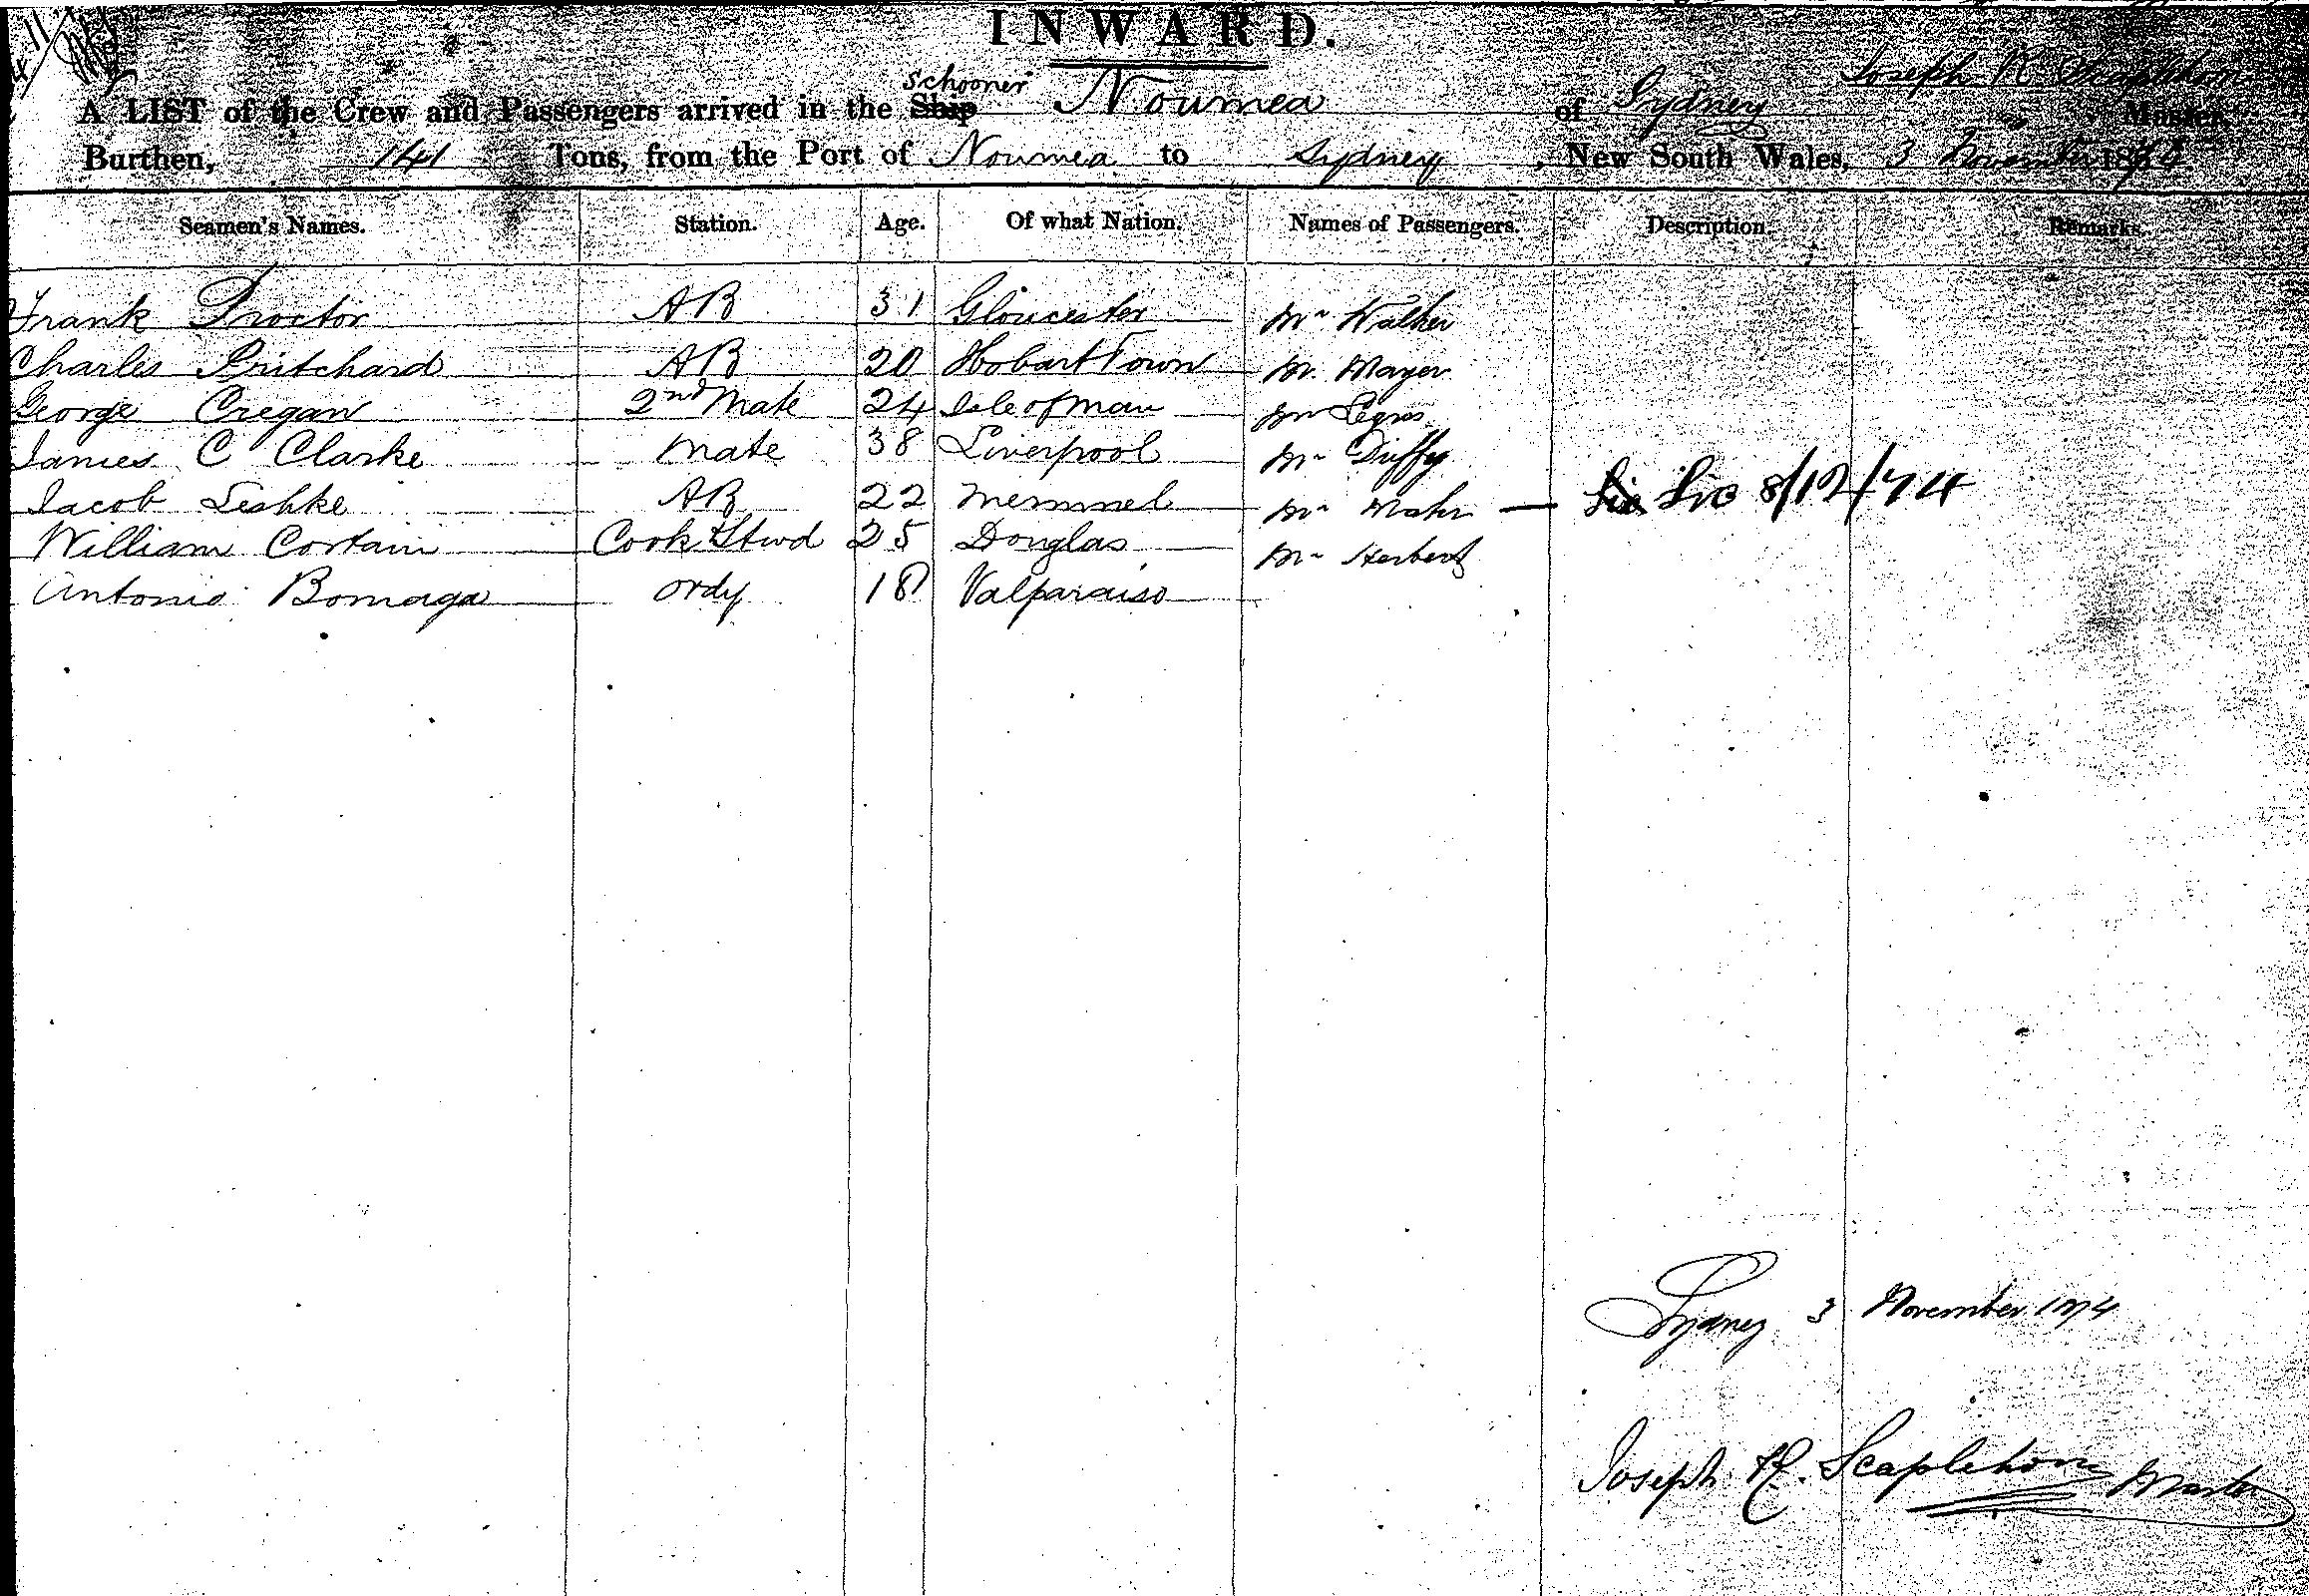 INWARD.
Schooner
Joseph R Scaplehorn
A LIST of the Crew and Passengers arrived in the Ship Noumea of Sydney, Master,
Burthen, 141 Tons, from the Port of Noumea to Sydney, New South Wales, 3 November 1874
Seamen's Names. Station. Age. Of what Nation. Names of Passengers. Description. Remarks.
Frank Proctor AB 31 Gloucester Mr Walker
Charles Pritchard AB 20 Hobart Town Mr. Mayer
George Cregan 2nd Mate 24 Isle of Man Mr Legras
James C Clarke Mate 38 Liverpool Mr Duffy
Jacob Leshke AB 22 Memmel Mr 8/12/74
William Cortain Cook & Stwd 25 Douglas Mr Herbert
Antonio Bomaga Ordy 18 Valparaiso
Sydney 3 November 1874
Joseph R. Scaplehorn Master